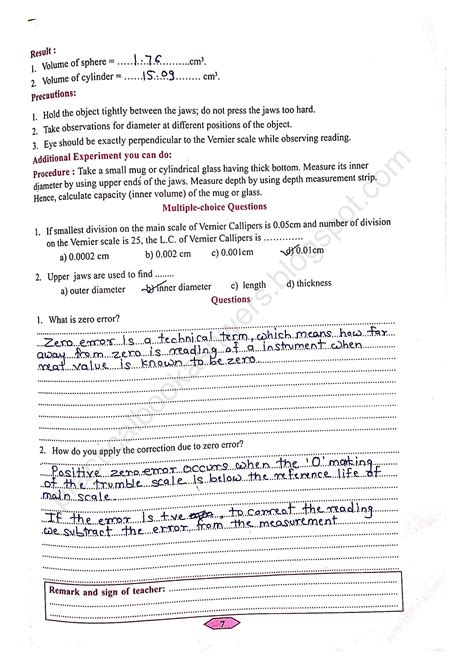 Result :
1. Volume of sphere = .....1.76..........cm³.
2. Volume of cylinder = ......15.09........ cm³.
Precautions:
1. Hold the object tightly between the jaws; do not press the jaws too hard.
2. Take observations for diameter at different positions of the object.
3. Eye should be exactly perpendicular to the Vernier scale while observing reading.
Additional Experiment you can do:
Procedure : Take a small mug or cylindrical glass having thick bottom. Measure its inner
diameter by using upper ends of the jaws. Measure depth by using depth measurement strip.
Hence, calculate capacity (inner volume) of the mug or glass.
Multiple-choice Questions
1. If smallest division on the main scale of Vernier Callipers is 0.05cm and number of division
on the Vernier scale is 25, the L.C. of Vernier Callipers is .............
a) 0.0002 cm b) 0.002 cm c) 0.001cm d) 0.01cm
2. Upper jaws are used to find .......
a) outer diameter b) inner diameter c) length d) thickness
Questions
1. What is zero error?
Zero error is a technical term, which means how far
away from zero is reading of a instrument when
real value is known to be zero.
2. How do you apply the correction due to zero error?
Positive zero error occurs when the '0' making
of the trumble scale is below the reference life of
main scale.
If the error is +ve, to correst the reading
we subtract the error from the measurement
Remark and sign of teacher:
7